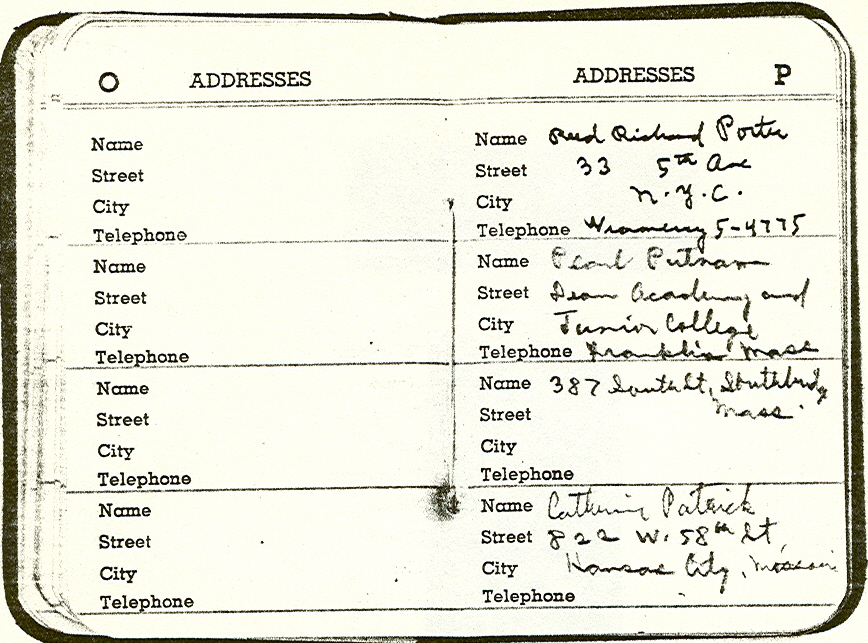 O ADDRESSES
Name
Street
City
Telephone
Name
Street
City
Telephone
Name
Street
City
Telephone
Name
Street
City
Telephone
ADDRESSES P
Name Reed Richard Porter
Street 33 5th Ave
City N.Y.C.
Telephone 5-4775
Name Pearl Putnam
Street Dean Academy and
City Junior College
Telephone Franklin Mass
Name 387 South St, Southbridge
Street Mass.
City
Telephone
Name Catherine Patrick
Street 822 W. 58th St,
City Kansas City, Missouri
Telephone